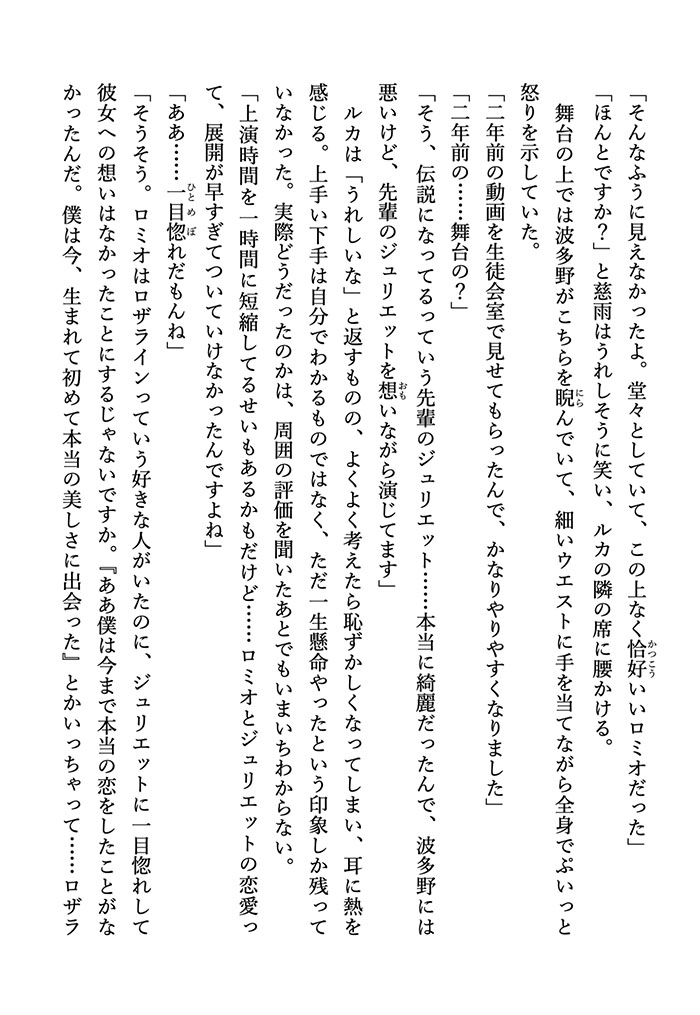 「そんなふうに見えなかったよ。堂々としていて、この上なく恰好いいロミオだった」
「ほんとですか？」と慈雨はうれしそうに笑い、ルカの隣の席に腰かける。
　舞台の上では波多野がこちらを睨んでいて、細いウエストに手を当てながら全身でぷいっと
怒りを示していた。
「二年前の動画を生徒会室で見せてもらったんで、かなりやりやすくなりました」
「二年前の……舞台の？」
「そう、伝説になってるっていう先輩のジュリエット……本当に綺麗だったんで、波多野には
悪いけど、先輩のジュリエットを想いながら演じてます」
　ルカは「うれしいな」と返すものの、よくよく考えたら恥ずかしくなってしまい、耳に熱を
感じる。上手い下手は自分でわかるものではなく、ただ一生懸命やったという印象しか残って
いなかった。実際どうだったのかは、周囲の評価を聞いたあとでもいまいちわからない。
「上演時間を一時間に短縮してるせいもあるかもだけど……ロミオとジュリエットの恋愛っ
て、展開が早すぎてついていけなかったんですよね」
「ああ……一目惚れだもんね」
「そうそう。ロミオはロザラインっていう好きな人がいたのに、ジュリエットに一目惚れして
彼女への想いはなかったことにするじゃないですか。『ああ僕は今まで本当の恋をしたことがな
かったんだ。僕は今、生まれて初めて本当の美しさに出会った』とかいっちゃって……ロザラ